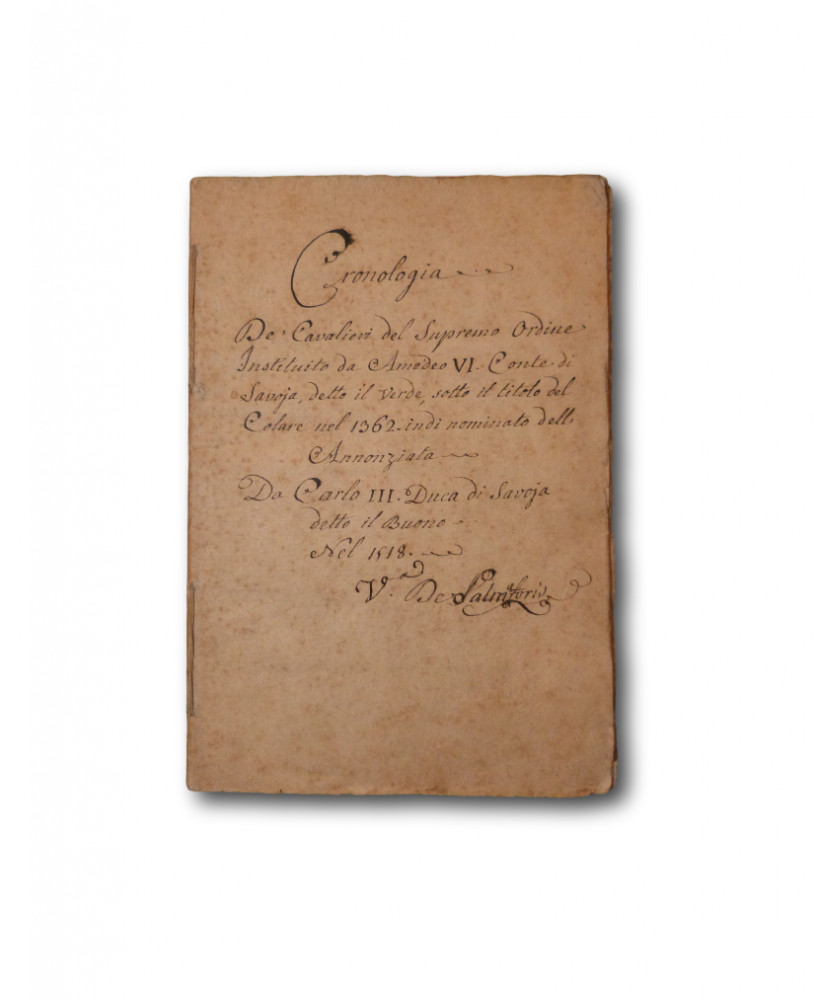 Cronologia
De' Cavalieri del Supremo Ordine
Instituito da Amodeo VI. Conte di
Savoja, detto il verde, sotto il titolo del
Colare nel 1362. indi nominato dell'
Annonziata
Da Carlo III. Duca di Savoja
detto il Buono
Nel 1518.
V.a De Salmatoris